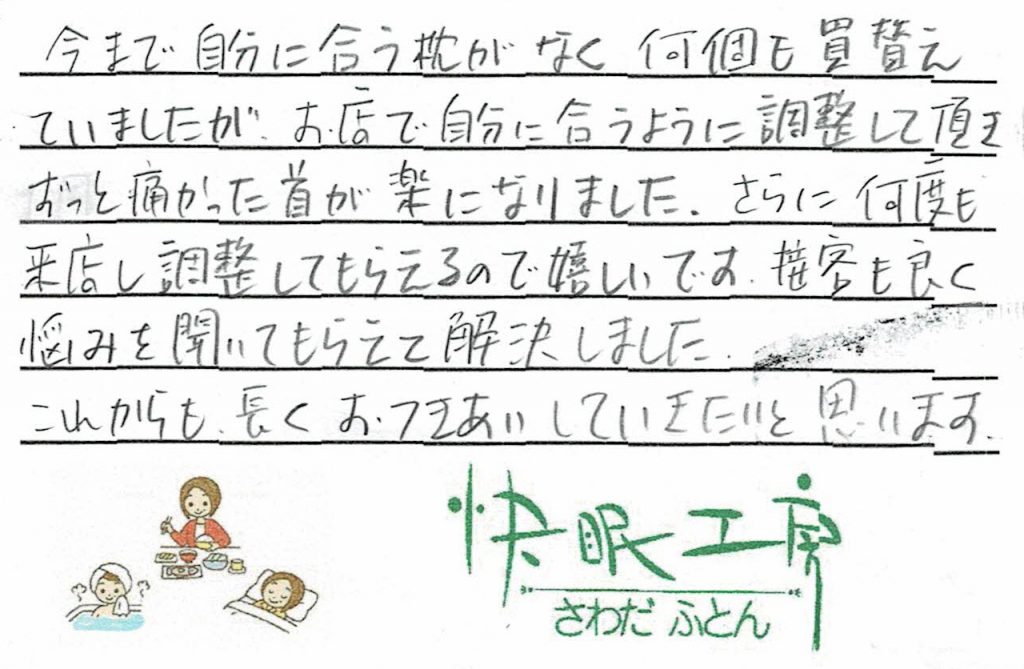 今まで自分に合う枕がなく 何個も買替え
ていましたが、お店で自分に合うように調整して頂き
ずっと痛かった首が楽になりました。さらに何度も
来店し調整してもらえるので嬉しいです。接客も良く
悩みを聞いてもらえて解決しました。
これからも、長くおつきあいしていきたいと思います。
快眠工房
さわだ ふとん